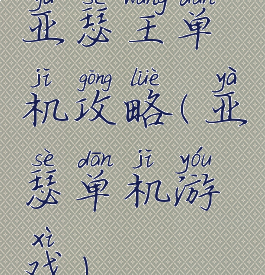 yà sè wáng dān
亚瑟王单
jī gōng lüè yà
机攻略(亚
sè dān jī yóu
瑟单机游
xì
戏)